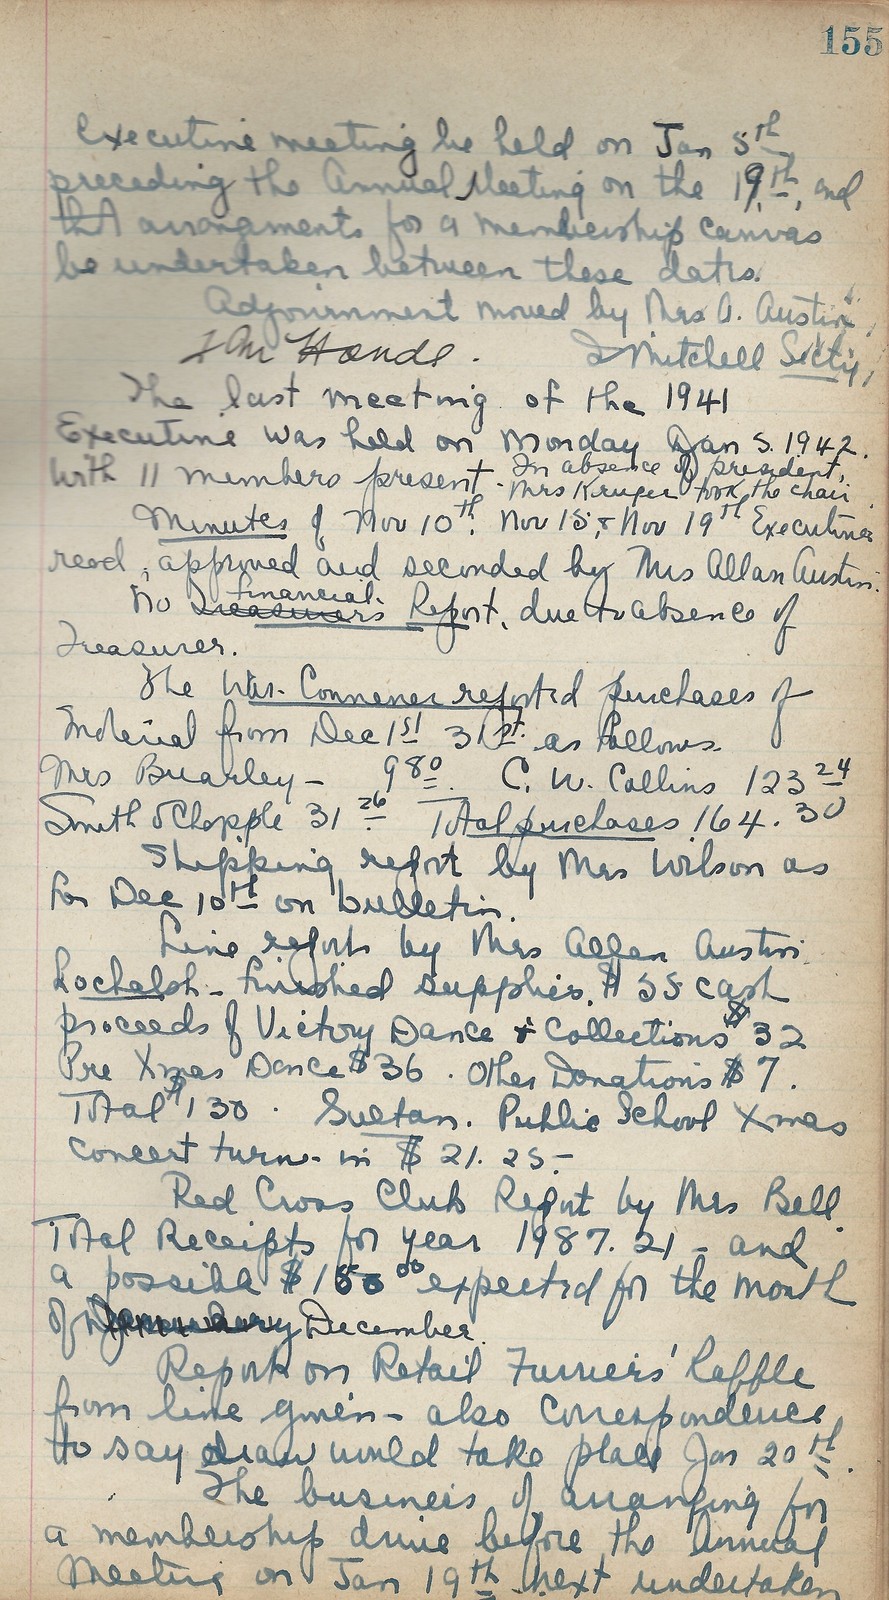 155
Executive meeting be held on Jan 5th
preceding the Annual Meeting on the 19th, and
that arrangments for a membership canvas
be undertaken between these dates.
Adjournment moved by Mrs A. Austin
Mitchell Secty
The last meeting of the 1941
Executive was held on Monday Jan 5. 1942.
With 11 members present. In absence of president,
Mrs Kruger took the chair
Minutes of Nov 10th, Nov 15, & Nov 19th Executives
read, approved and seconded by Mrs Allan Austin.
No Treasurers Financial Report, due to absence of
Treasurer.
The War Convener reported purchases of
Material from Dec 1st 31st as follows.
Mrs Brearley - 9 80. C. W. Collins 123 24
Smith & Chapple 31 26 Total purchases 164.30
Shipping report by Mrs Wilson as
for Dec 10th on bulletin.
Line reports by Mrs Allan Austin
Lochalsh - finished supplies, $55 cash
proceeds of Victory Dance & Collections $32
Pre Xmas Dance $36. Other Donations $7.
Total $130. Sultan. Public School Xmas
concert turn-in $21.25-
Red Cross Club Report by Mrs Bell.
Total Receipts for year 1987.21 - and
a possible $150 00 expected for the month
of December.
Report on Retail Furriers' Raffle
from line given - also correspondence
to say draw would take place Jan 20th.
The business of arranging for
a membership drive before the Annual
Meeting on Jan 19th next undertaken